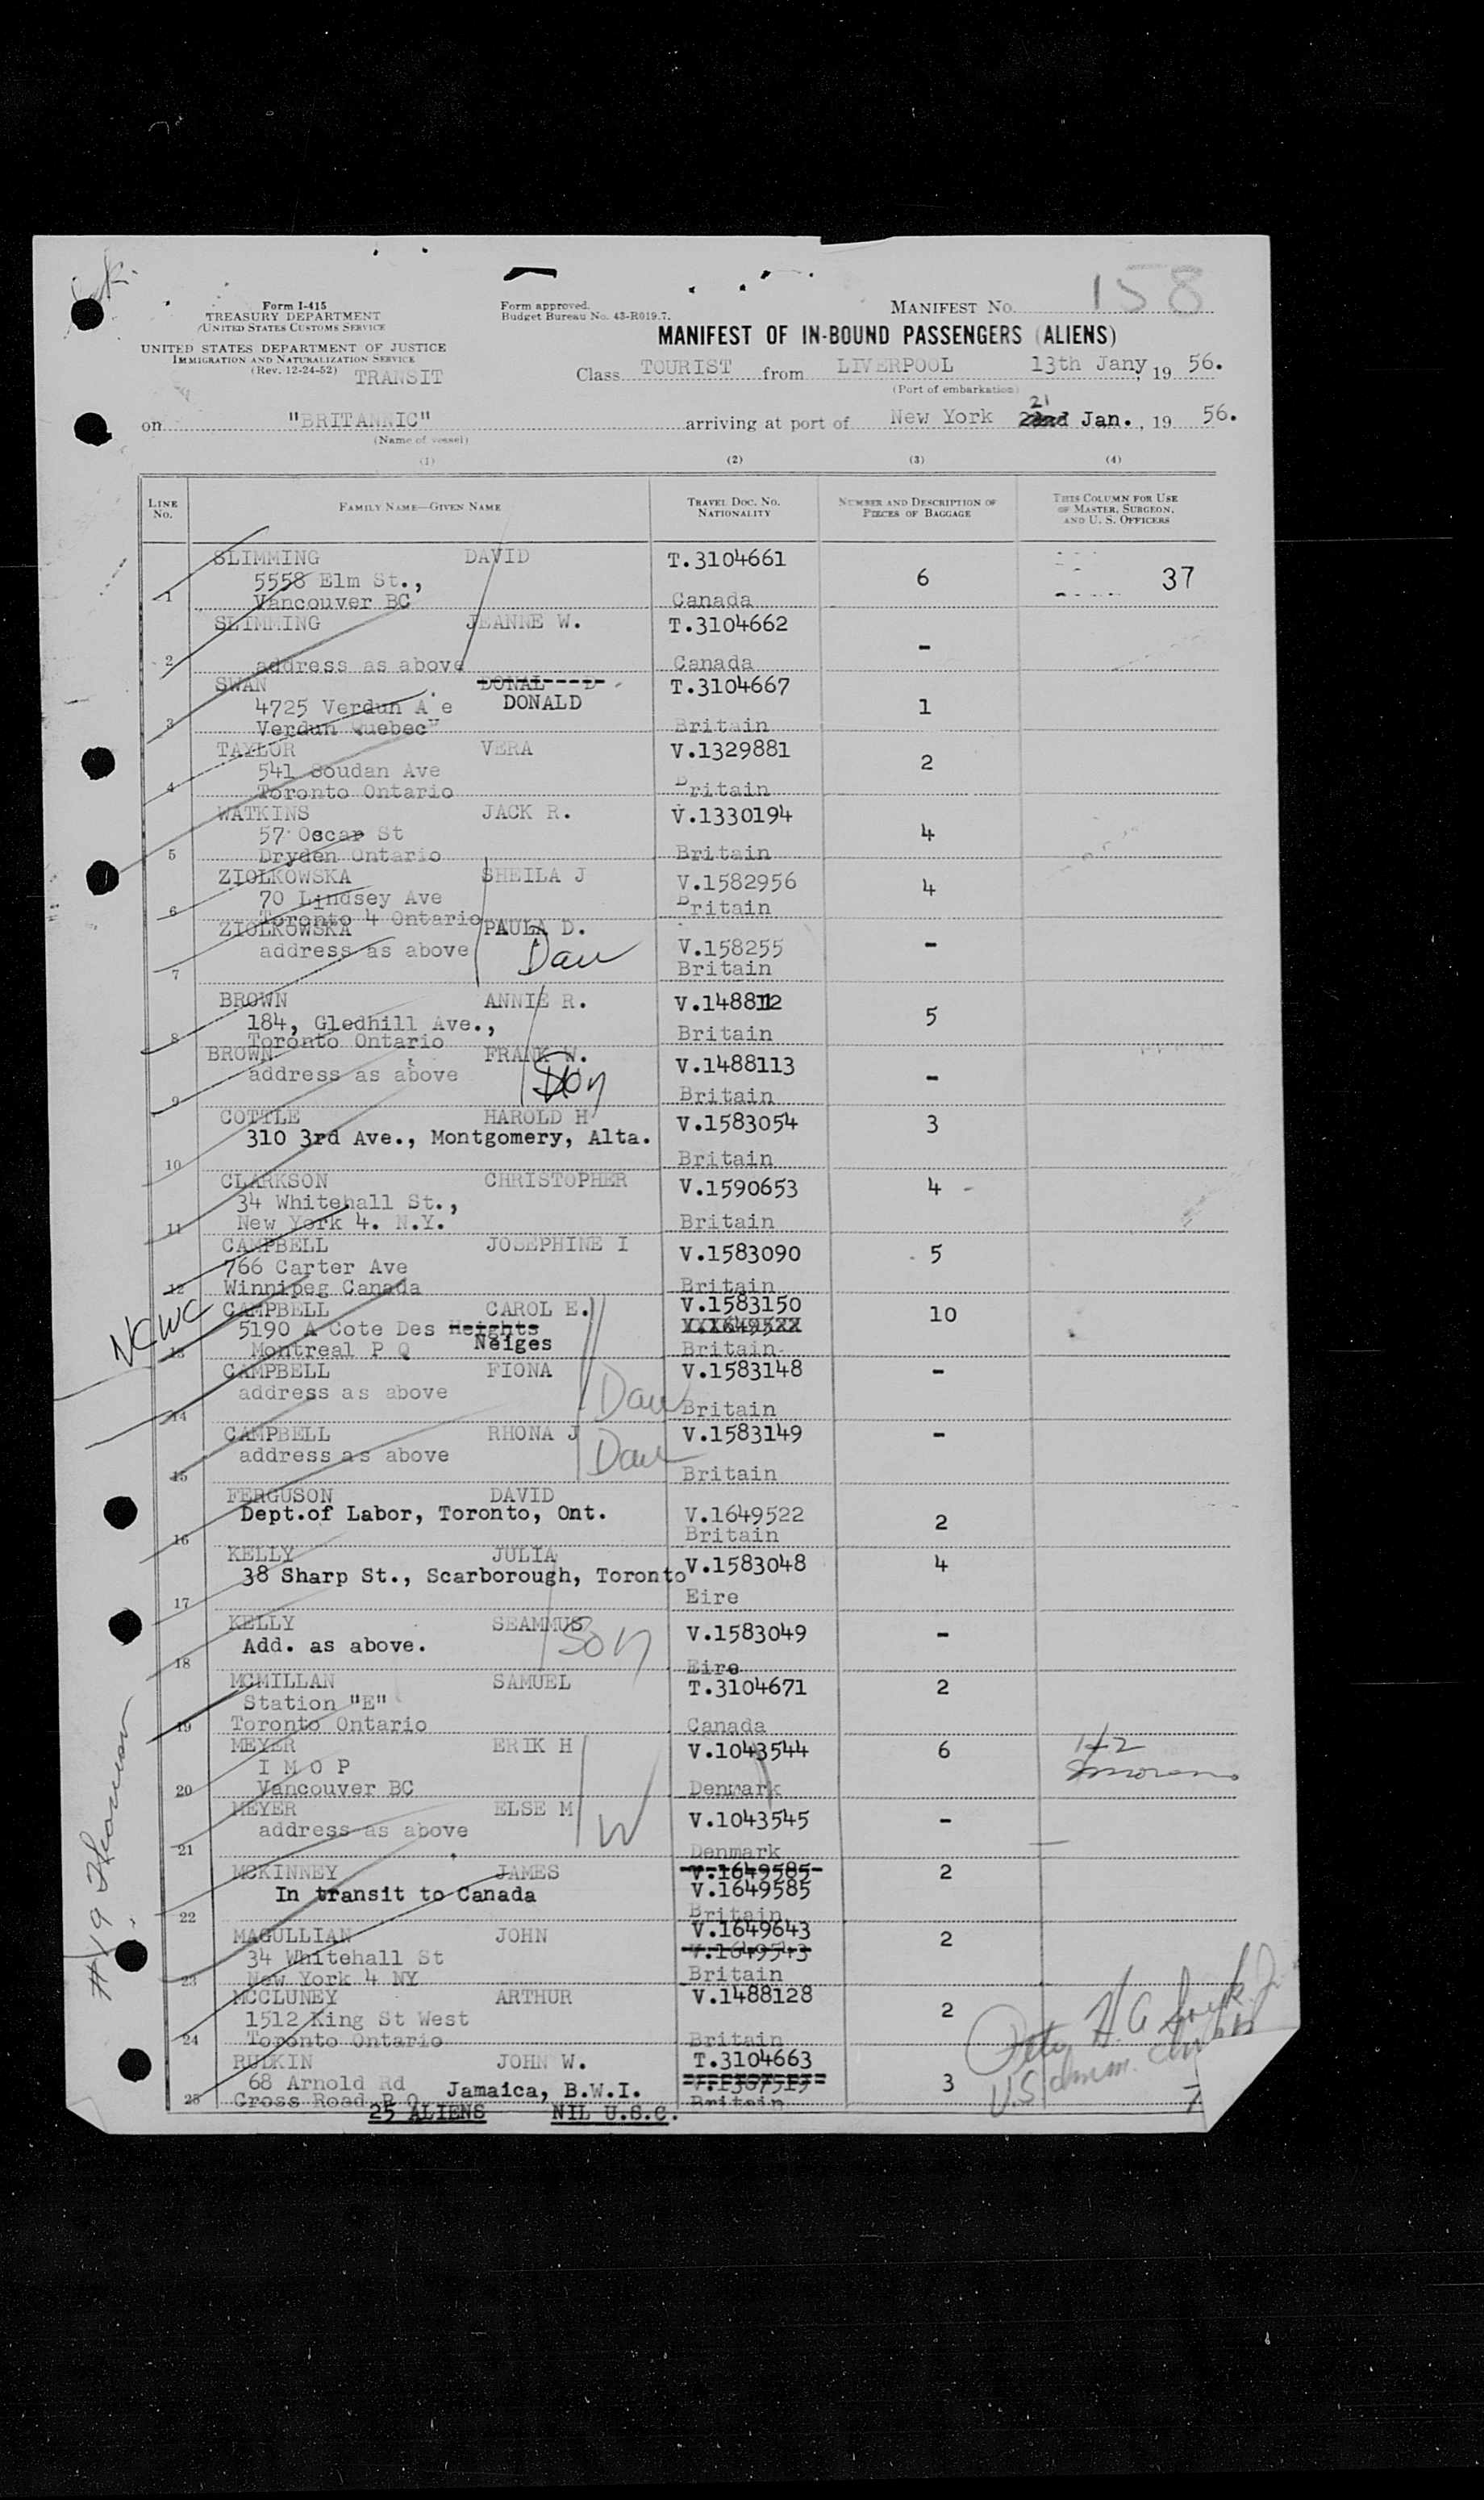 158
Form I-415
TREASURY DEPARTMENT
UNITED STATES CUSTOMS SERVICE
Form approved.
Budget Bureau No. 43-R019.7.
MANIFEST No.
MANIFEST OF IN-BOUND PASSENGERS (ALIENS)
UNITED STATES DEPARTMENT OF JUSTICE
IMMIGRATION AND NATURALIZATION SERVICE
(Rev. 12-24-52) TRANSIT
Class TOURIST from LIVERPOOL 13th Jany, 19 56.
(Port of embarkation)
21
on "BRITANNIC" arriving at port of New York 22nd Jan., 19 56.
(Name of vessel)
(1) (2) (3) (4)
LINE No. FAMILY NAME—GIVEN NAME TRAVEL DOC. NO. NATIONALITY NUMBER AND DESCRIPTION OF PIECES OF BAGGAGE THIS COLUMN FOR USE OF MASTER, SURGEON, AND U. S. OFFICERS
SLIMMING DAVID T.3104661
5558 Elm St., 6 37
1 Vancouver BC Canada
SLIMMING JEANNE W. T.3104662
-
2 address as above Canada
SWAN DONAL---D- T.3104667
4725 Verdun A e DONALD 1
3 Verdun Quebec" Britain
TAYLOR VERA V.1329881
541 Soudan Ave 2
4 Toronto Ontario Britain
WATKINS JACK R. V.1330194
57 Oscar St 4
5 Dryden Ontario Britain
ZIOLKOWSKA SHEILA J V.1582956
70 Lindsey Ave 4
6 Toronto 4 Ontario Britain
ZIOLKOWSKA PAULA D.
address as above Dau V.158255 -
7 Britain
BROWN ANNIE R. V.148812
184, Gledhill Ave., 5
8 Toronto Ontario Britain
BROWN FRANK W. V.1488113
address as above Son -
9 Britain
COTTLE HAROLD H V.1583054 3
310 3rd Ave., Montgomery, Alta.
10 Britain
CLARKSON CHRISTOPHER V.1590653 4 -
34 Whitehall St.,
11 New York 4. N.Y. Britain
CAMPBELL JOSEPHINE I V.1583090 5
766 Carter Ave
12 Winnipeg Canada Britain
NCWC
CAMPBELL CAROL E. V.1583150 10
5190 A Cote Des Heights V.1649522
13 Montreal P Q Neiges Britain
CAMPBELL FIONA V.1583148 -
address as above Dau
14 Britain
CAMPBELL RHONA J V.1583149 -
address as above Dau
15 Britain
FERGUSON DAVID
Dept.of Labor, Toronto, Ont. V.1649522 2
16 Britain
KELLY JULIA V.1583048 4
38 Sharp St., Scarborough, Toronto
17 Eire
KELLY SEAMMUS V.1583049 -
Add. as above. Son
18 Eire
MCMILLAN SAMUEL T.3104671 2
Station "E"
19 Toronto Ontario Canada
MEYER ERIK H V.1043544 6 1+2
I M O P
20 Vancouver BC Denmark
MEYER ELSE M V.1043545 -
address as above W
21 Denmark
MCKINNEY JAMES V.1649585 2
In transit to Canada V.1649585
22 Britain
MAGULLIAN JOHN V.1649643 2
34 Whitehall St V.1649543
23 New York 4 NY Britain
MCCLUNEY ARTHUR V.1488128 2
1512 King St West
24 Toronto Ontario Britain
RUDKIN JOHN W. T.3104663
68 Arnold Rd Jamaica, B.W.I. 3
25 Cross Road P.O. Britain
25 ALIENS NIL U.S.C.
U.S. Imm.
7